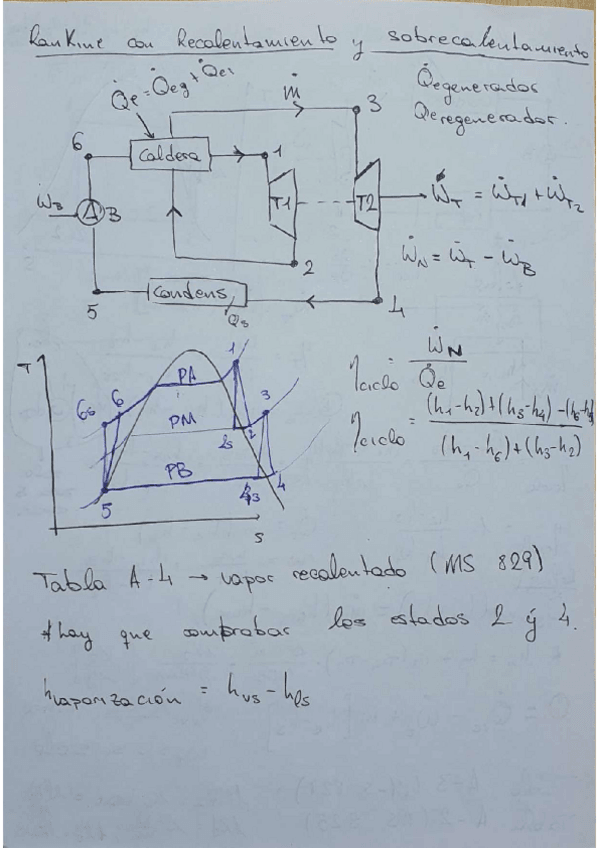 Rankine con Recalentamiento y sobrecalentamiento
Q̇e = Q̇eg + Q̇er
ṁ
Q̇e generador
Q̇e regenerador.
3
6
Caldera
1
T1
T2
Ẇ_T = Ẇ_T1 + Ẇ_T2
Ẇ_B
B
Ẇ_N = Ẇ_T - Ẇ_B
2
5
Condens.
Q̇s
4
T
1
6s
6
PA
3
PM
2s
2
PB
5
4
s
η ciclo = Ẇ_N / Q̇e
η ciclo = (h1-h2)+(h3-h4)-(h6-h5) / (h1-h6)+(h3-h2)
Tabla A-4 → vapor recalentado (MS 829)
* hay que comprobar los estados 2 y 4.
h vaporización = hvs - hls